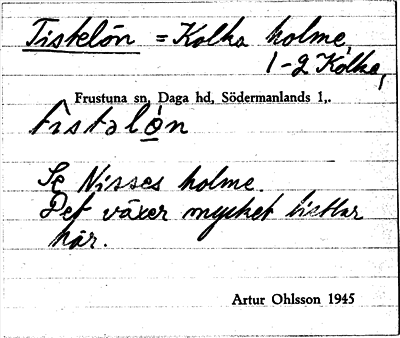 Tistelön = Kolka holme,
1-2 Kolka,
Frustuna sn, Daga hd, Södermanlands l,.
tistəlò̱n
Se Nisses holme.
Det växer mycket tistlar
här.
Artur Ohlsson 1945